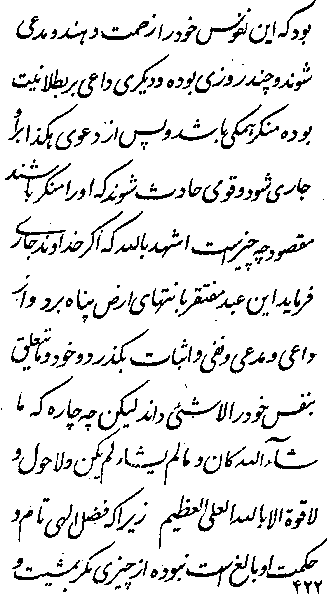 بود که این نفوس خود را زحمت دهند و مدعی
شوند و چند روزی بوده و دیگری داعی بر بطلانیت
بوده منکر همگی باشد و پس از دعوی هکذا برآ و
جاری شود و قوی حادث شوند که او را منکر باشند
مقصود چه چیز است اشهد بالله که اگر خداوند جاری
فرماید این عبد مفتقر بانتهای ارض پناه برد و از
داعی و مدعی و نفی و اثبات بگذرد و خود و ما تعلق
بنفس خود را لاشئ داند لیکن چه چاره که ما
شآء الله کان و ما لم یشاء لم یکن و لا حول و
لا قوة الا بالله العلی العظیم زیرا که فضل الهی تام و
حکمت او بالغ است نبوده از چیزی مگر بمشیت و
۴۲۲